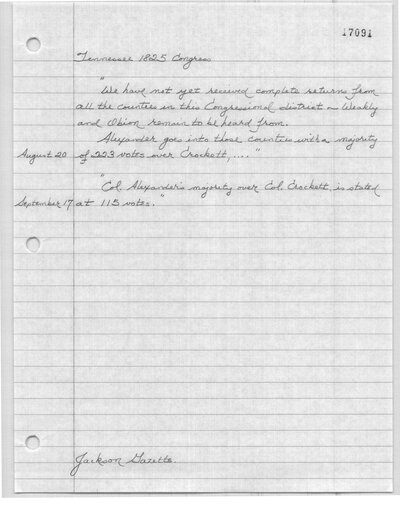 17091
Tennessee 1825 Congress
"We have not yet received complete returns from
all the counties in this Congressional district - Weakly
and Obion remain to be heard from.
Alexander goes into those counties with a majority
August 20 of 223 votes over Crockett, ...."
"Col. Alexander's majority over Col. Crockett, is stated
September 17 at 115 votes."
Jackson Gazette.